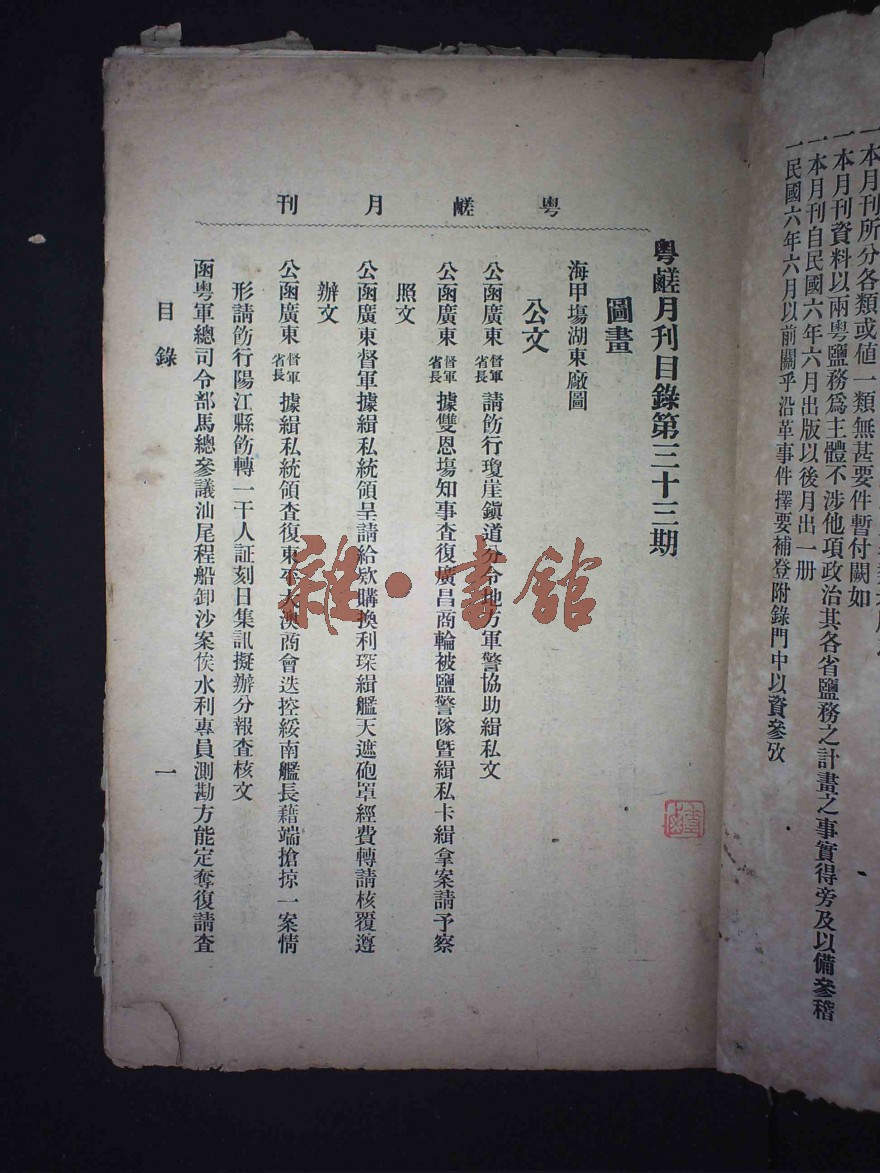 一本月刊所分各類或値一類無甚要件暫付闕如
一本月刊資料以兩粤鹽務爲主體不涉他項政治其各省鹽務之計畫之事實得旁及以備參稽
一本月刊自民國六年六月出版以後月出一册
一民國六年六月以前關乎沿革事件擇要補登附錄門中以資參攷
粤鹺月刊
粤鹺月刊目錄第三十三期
圖畫
海甲塲湖東廠圖
公文
公函廣東督軍省長請飭行瓊崖鎭道分令地方軍警協助緝私文
公函廣東督軍省長據雙恩塲知事查復廣昌商輪被鹽警隊曁緝私卡緝拿案請予察
照文
公函廣東督軍據緝私統領呈請給欵購換利琛緝艦天遮砲罩經費轉請核覆遵
辦文
公函廣東督軍省長據緝私統領查復東平大澳商會迭控綏南艦長藉端搶掠一案情
形請飭行陽江縣飭轉一干人証刻日集訊擬辦分報查核文
函粤軍總司令部馬總參議汕尾程船卸沙案俟水利專員測勘方能定奪復請查
目錄
一
雜·書館